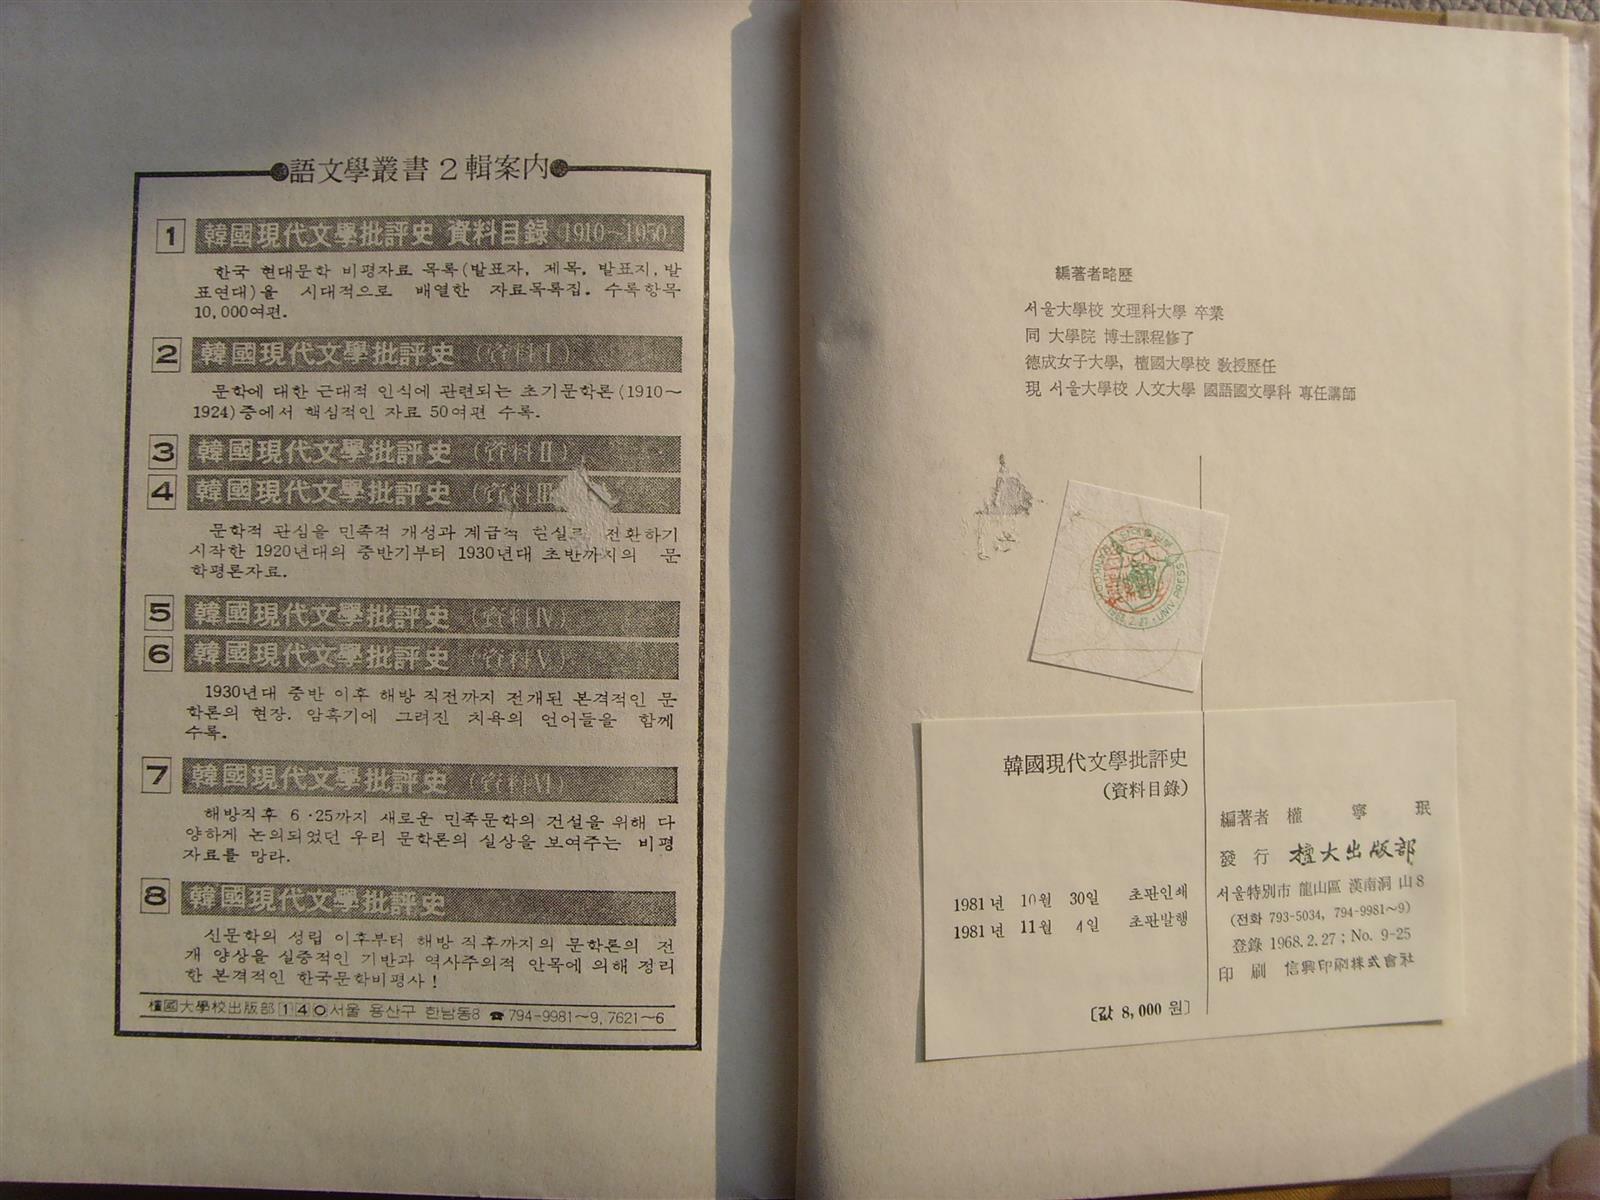 語文學叢書 2 輯案内
1 韓國現代文學批評史 資料目録 (1910~1950)
한국 현대문학 비평자료 목록(발표자, 제목, 발표지, 발
표연대)을 시대적으로 배열한 자료목록집. 수록항목
10,000여편.
2 韓國現代文學批評史 (資料Ⅰ)
문학에 대한 근대적 인식에 관련되는 초기문학론(1910~
1924)중에서 핵심적인 자료 50여편 수록.
3 韓國現代文學批評史 (資料Ⅱ)
4 韓國現代文學批評史 (資料Ⅲ
문학적 관심을 민족적 개성과 계급적 현실로 전환하기
시작한 1920년대의 중반기부터 1930년대 초반까지의 문
학평론자료.
5 韓國現代文學批評史 (資料Ⅳ)
6 韓國現代文學批評史 (資料Ⅴ)
1930년대 중반 이후 해방 직전까지 전개된 본격적인 문
학론의 현장. 암흑기에 그려진 치욕의 언어들을 함께
수록.
7 韓國現代文學批評史 (資料Ⅵ)
해방직후 6·25까지 새로운 민족문학의 건설을 위해 다
양하게 논의되었던 우리 문학론의 실상을 보여주는 비평
자료를 망라.
8 韓國現代文學批評史
신문학의 성립 이후부터 해방 직후까지의 문학론의 전
개 양상을 실증적인 기반과 역사주의적 안목에 의해 정리
한 본격적인 한국문학비평사!
檀國大學校出版部 1 4 0 서울 용산구 한남동8 ☎794-9981~9, 7621~6
編著者略歷
서울大學校 文理科大學 卒業
同 大學院 博士課程修了
德成女子大學, 檀國大學校 敎授歷任
現 서울大學校 人文大學 國語國文學科 專任講師
UNIV. PRESS
韓國現代文學批評史
(資料目錄)
1981년 10월 30일 초판인쇄
1981년 11월 4일 초판발행
[값 8,000 원]
編著者 權 寧 珉
發 行 檀大出版部
서울特別市 龍山區 漢南洞 山 8
(전화 793-5034, 794-9981~9)
登錄 1968. 2. 27 ; No. 9-25
印 刷 信興印刷株式會社